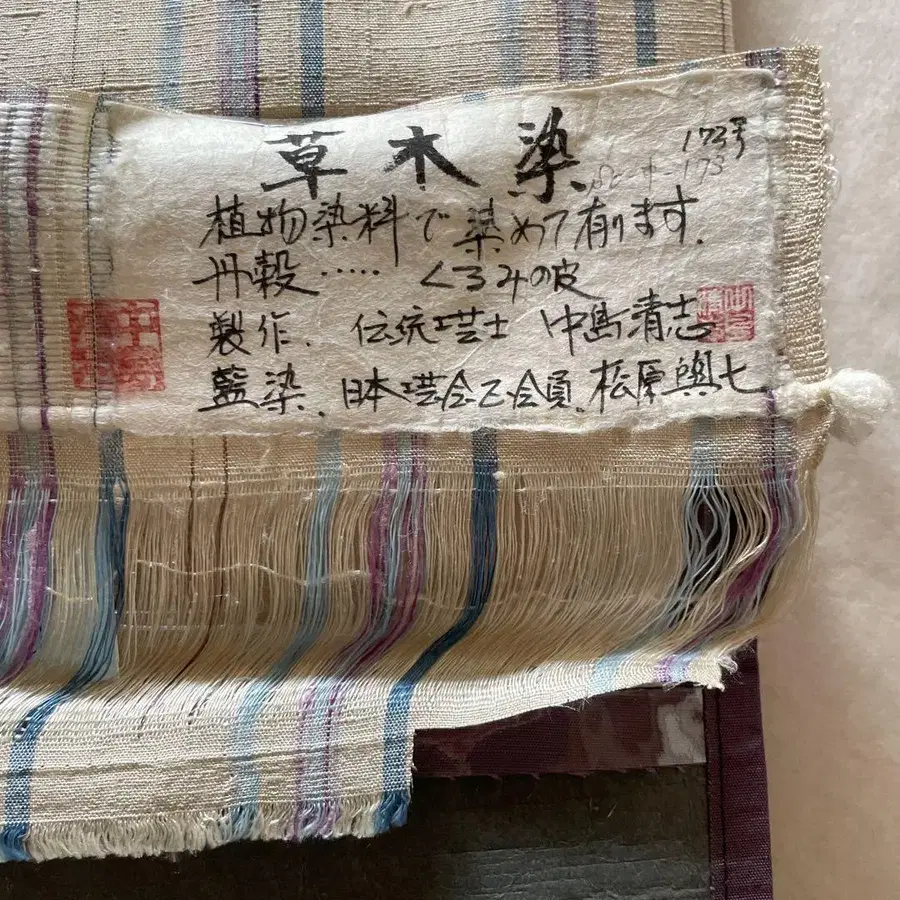 草木染
173号
植物染料で染めて有ります.
丹穀‥‥‥ くるみの皮
製作. 伝統工芸士 中島清志
藍染. 日本工芸会正会員. 松原與七